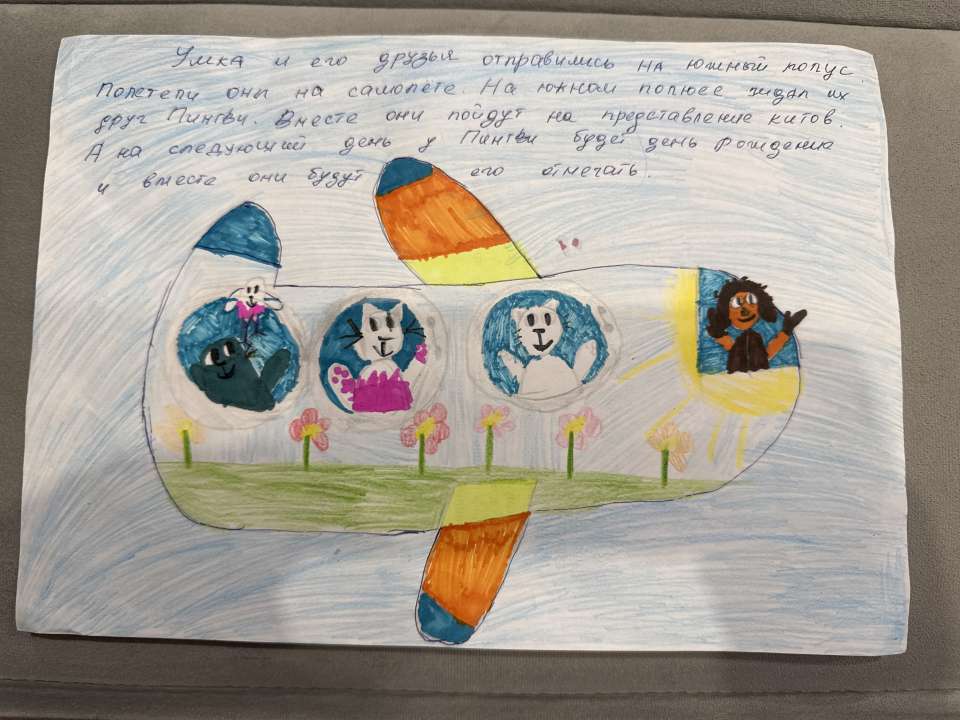 Умка и его друзья отправились на южный полус.
Полетели оны на самолёте. На южном полюсе ждал их
друг Пингви. Вместе они пойдут на представление китов.
А на следующий день у Пингви будет день рождения
и вместе они будут его отмечать.